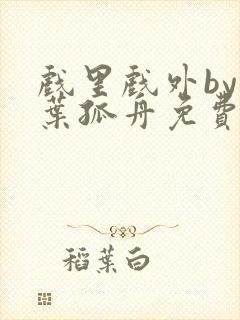 戲里戲外by
葉孤丹免費
稻葉白